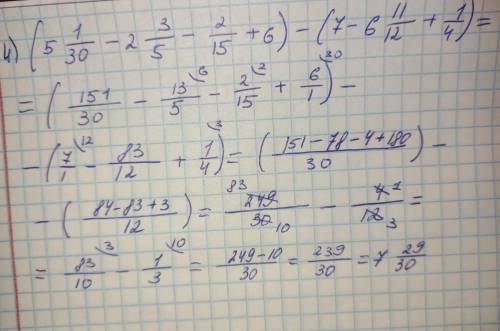 4) (5 1/30 - 2 3/5 - 2/15 + 6) - (7 - 6 11/12 + 1/4) =
= (151/30 - 13/5 ⁶ - 2/15 ² + 6/1 ³⁰) -
- (7/1 ¹² - 83/12 + 1/4 ³) = (151-78-4+180/30) -
- (84-83+3/12) = 83 249/30 10 - 4 1/12 3 =
= 83/10 ³ - 1/3 ¹⁰ = 249-10/30 = 239/30 = 7 29/30